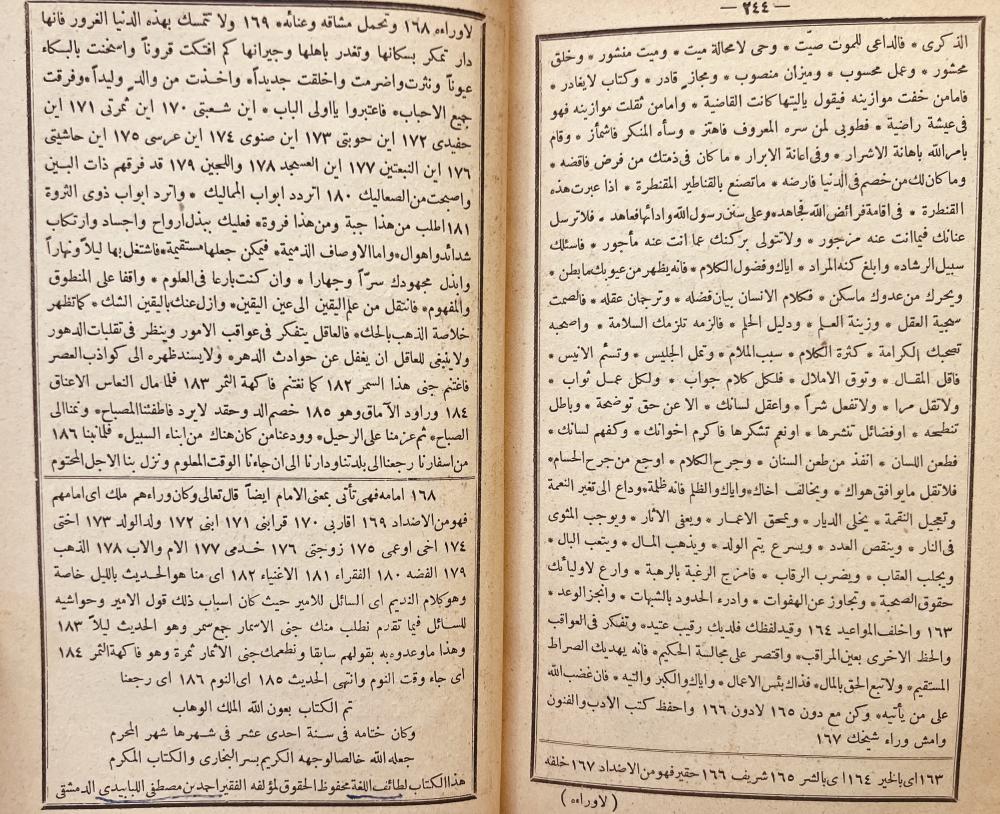 — ٢٤٤ —
الذكرى * فالداعى للموت صيّت * وحى لامحالة ميت * وميت منشور * وخلق
محشور * وعمل محسوب * وميزان منصوب * ومجاز قادر * وكتاب لايغادر *
فامامن خفت موازينه فيقول ياليتها كانت القاضية * وامامن ثقلت موازينه فهو
فى عيشة راضية * فطوبى لمن سره المعروف فاهتز * وسأه المنكر فاشمأز * وقام
بامرالله باهانة الاشرار * وفى اعانة الابرار * ما كان فى ذمتك من فرض فاقضه *
وما كان لك من خصم فى الدنيا فارضه * ماتصنع بالقناطير المقنطرة * اذا عبرت هذه
القنطرة * فى اقامة فرائض الله فجاهد * وعلى سنن رسول الله وادائها فعاهد * فلاترسل
عنانك فيماانت عنه مزجور * ولاتتولى بركنك عما انت عنه مأجور * فاسئلك
سبيل الرشاد * وابلغ كنه المراد * اياك وفضول الكلام * فانه يظهر من عيوبك مابطن *
ويحرك من عدوك ماسكن * فكلام الانسان بيان فضله * وترجمان عقله * فالصمت
سجية العقل * وزينة العلم * ودليل الحلم * فالزمه تلزمك السلامة * واصحبه
تصحبك الكرامة * كثرة الكلام * سبب الملام * وتمل الجليس * وتسئم الانيس *
فاقل المقال * وتوق الاملال * فلكل كلام جواب * ولكل عمل ثواب *
ولاتقل مرا * ولاتفعل شراً * واعقل لسانك * الا عن حق توضحة * وباطل
تنطيحه * اوفضائل تنشرها * اونعم تشكرها فاكرم اخوانك * وكفهم لسانك *
فطعن اللسان * انفذ من طعن السنان * وجرح الكلام * اوجع من جرح الحسام *
فلاتقل مايوافق هواك * ويخالف اخاك * واياك والظلم فانه ظلمة * وداع الى تغير النعمة
وتعجيل النقمة * يخلى الديار * ويمحق الاعمار * ويعفى الآثار * ويوجب المثوى
فى النار * وينقص العدد * ويسرع يتم الولد * ويذهب المال * ويتعب البال *
ويجلب العقاب * ويضرب الرقاب * فامزج الرغبة بالرهبة * وارع لاوليائك
حقوق الصحبة * وتجاوز عن الهفوات * وادرء الحدود بالشبهات * وانجز الوعد *
١٦٣ واخلف المواعيد ١٦٤ وقيد لفظك فلديك رقيب عتيد * وتفكر فى العواقب
والحظ الاخرى بعين المراقب * واقتصر على مجالسة الحكيم * فانه يهديك الصراط
المستقيم * ولاتبع الحق بالمال * فذاك بئس الاعمال * واياك والكبر والتيه * فان غضب الله
على من يأتيه * وكن مع دون ١٦٥ لادون ١٦٦ واحفظ كتب الادب والفنون
وامش وراء شيخك ١٦٧
١٦٣ اى بالخير ١٦٤ اى بالشر ١٦٥ شريف ١٦٦ حقير فهو من الاضداد ١٦٧ خلفه
( لاوراءه )
لاوراءه ١٦٨ وتحمل مشاقه وعنائه * ١٦٩ ولا تتمسك بهذه الدنيا الغرور فانها
دار تمكر بسكانها وتغدر باهلها وجيرانها كم افتكت قروناً واسخنت بالبكاء
عيوناً ونثرت واضرمت واخلقت جديداً * واخذت من والدٍ وليداً * وفرقت
جميع الاحباب * فاعتبروا يااولى الباب * اين شعبتى ١٧٠ اين ثمرتى ١٧١ اين
حفيدى ١٧٢ اين حوبتى ١٧٣ اين صنوى ١٧٤ اين عرسى ١٧٥ اين حاشيتى
١٧٦ اين النبعتين ١٧٧ اين العسجد ١٧٨ واللجين ١٧٩ قد فرقهم ذات البين
واصبحت من الصعاليك ١٨٠ اتردد ابواب المماليك * واترد ابواب ذوى الثروة
١٨١ اطلب من هذا جبة ومن هذا فروة * فعليك ببذل أرواح واجساد وارتكاب
شدائد واهوال * واما الاوصاف الذميمة * فيمكن جعلها مستقيمة * فاشتغل بها ليلاً ونهاراً
وابذل مجهودك سرّاً وجهارا * وان كنت بارعا فى العلوم * واقفا على المنطوق
والمفهوم * فانتقل من علم اليقين الى عين اليقين * وازل عنك باليقين الشك * كما تظهر
خلاصة الذهب بالحك * فالعاقل يتفكر فى عواقب الامور وينظر فى تقلبات الدهور
ولاينبغى للعاقل ان يغفل عن حوادث الدهر * ولايسند ظهره الى كواذب العصر
فاغتنم جنى هذا السمر ١٨٢ كما نغتنم فاكهة الثمر ١٨٣ فلما مال النعاس الاعناق
١٨٤ وراود الآماق وهو ١٨٥ خصم الد وحقد لايرد فاطفئنا المصباح * ونمنا الى
الصباح * ثم عزمنا على الرحيل * وودعنا من كان هناك من ابناء السبيل * فلما بنا ١٨٦
من اسفارنا رجعنا الى بلدتنا ودارنا الى ان جاءنا الوقت المعلوم ونزل بنا الاجل المحتوم
١٦٨ امامه فهى تأتى بمعنى الامام ايضاً قال تعالى وكان وراءهم ملك اى امامهم
فهو من الاضداد ١٦٩ اقاربى ١٧٠ قرابنى ١٧١ ابنى ١٧٢ ولد الولد ١٧٣ اختى
١٧٤ اخى اوعمى ١٧٥ زوجتى ١٧٦ خدمى ١٧٧ الام والاب ١٧٨ الذهب
١٧٩ الفضه ١٨٠ الفقراء ١٨١ الاغنياء ١٨٢ اى منا هو الحديث بالليل خاصة
وهو كلام النديم اى السائل للامير حيث كان اسباب ذلك قول الامير وحواشيه
للسائل فيما تقدم نطلب منك جنى الاسمار جمع سمر وهو الحديث ليلاً ١٨٣
وهذا ماوعدوه به بقولهم سابقا ونطعمك جنى الاثمار ثمرة وهو فاكهة الثمر ١٨٤
اى جاء وقت النوم وانتهى الحديث ١٨٥ اى النوم ١٨٦ اى رجعنا
تم الكتاب بعون الله الملك الوهاب
وكان ختامه فى سنة احدى عشر فى شهرها شهر المحرم
جعله الله خالصا لوجهه الكريم بسر البخارى والكتاب المكرم
هذا الكتاب لطائف اللغة محفوظ الحقوق لمؤلفه الفقير احمد بن مصطفى اللبابيدى الدمشقى